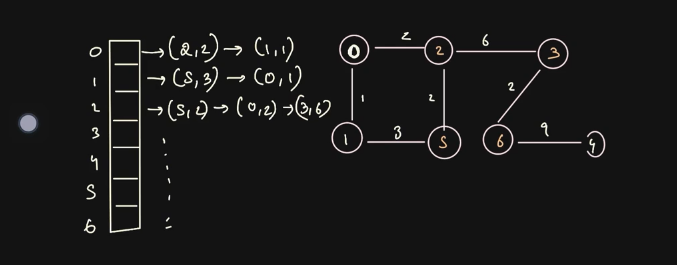 0 → (2,2) → (1,1)
1 → (5,3) → (0,1)
2 → (5,2) → (0,2) → (3,6)
3
4
5
6
0 2 2 6 3
1 2 2
1 3 5 6 9 4